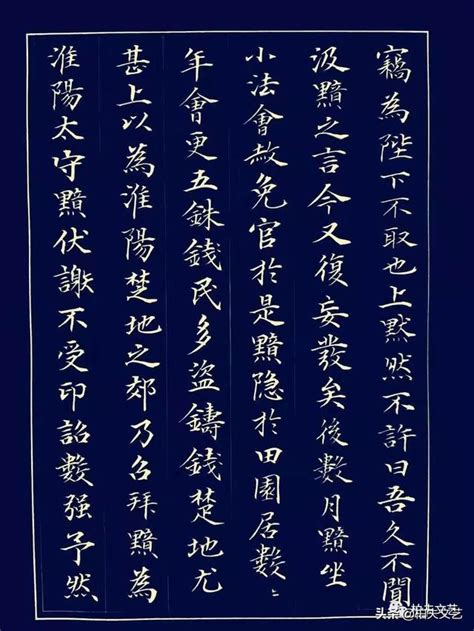 竊為陛下不取也上黙然不許曰吾久不聞
汲黯之言今又復妄發矣後數月黯坐
小法會赦免官於是黯隐於田園居數
年會更五銖錢民多盜鑄錢楚地尤
甚上以為淮陽楚地之郊乃召拜黯為
淮陽太守黯伏謝不受印詔數强予然
头条@柏夫文艺